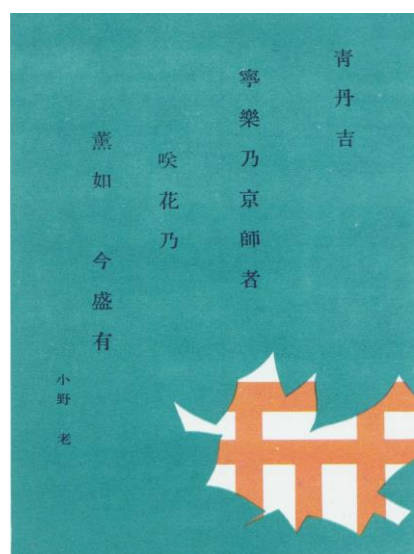 青丹吉
寧樂乃京師者
咲花乃
薫如 今盛有
小野 老